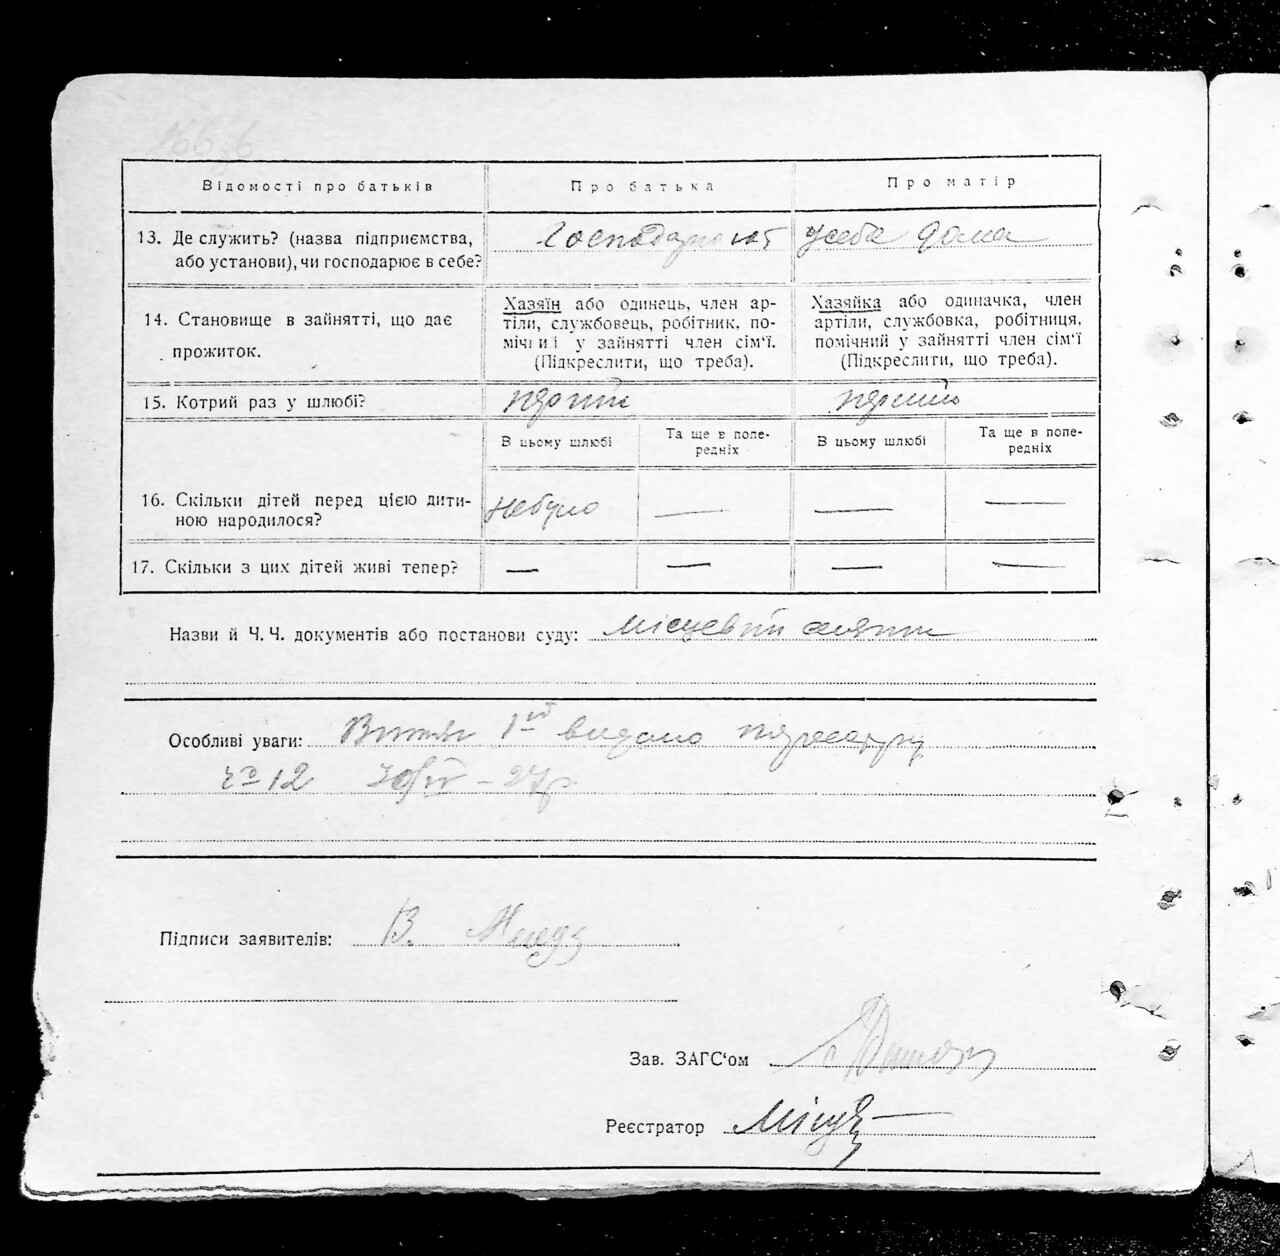 Відомості про батьків
Про батька
Про матір
13. Де служить? (назва підприємства,
або установи), чи господарює в себе?
Господарюют усебе дома
14. Становище в зайнятті, що дає
прожиток.
Хазяїн або одинець, член ар-
тіли, службовець, робітник, по-
мічниі у зайнятті член сім'ї.
(Підкреслити, що треба).
Хазяйка або одиначка, член
артіли, службовка, робітниця,
помічний у зайнятті член сім'ї
(Підкреслити, що треба).
15. Котрий раз у шлюбі?
В цьому шлюбі
Та ще в попе-
редніх
В цьому шлюбі
Та ще в попе-
редніх
16. Скільки дітей перед цією дити-
ною народилося?
Небуло — — —
17. Скільки з цих дітей живі тепер?
— — — —
Назви й Ч. Ч. документів або постанови суду: Місцевий
Особливі уваги: Витяг 1й видано
12 27р.
Підписи заявителів: В.
Зав. ЗАГС'ом
Реєстратор